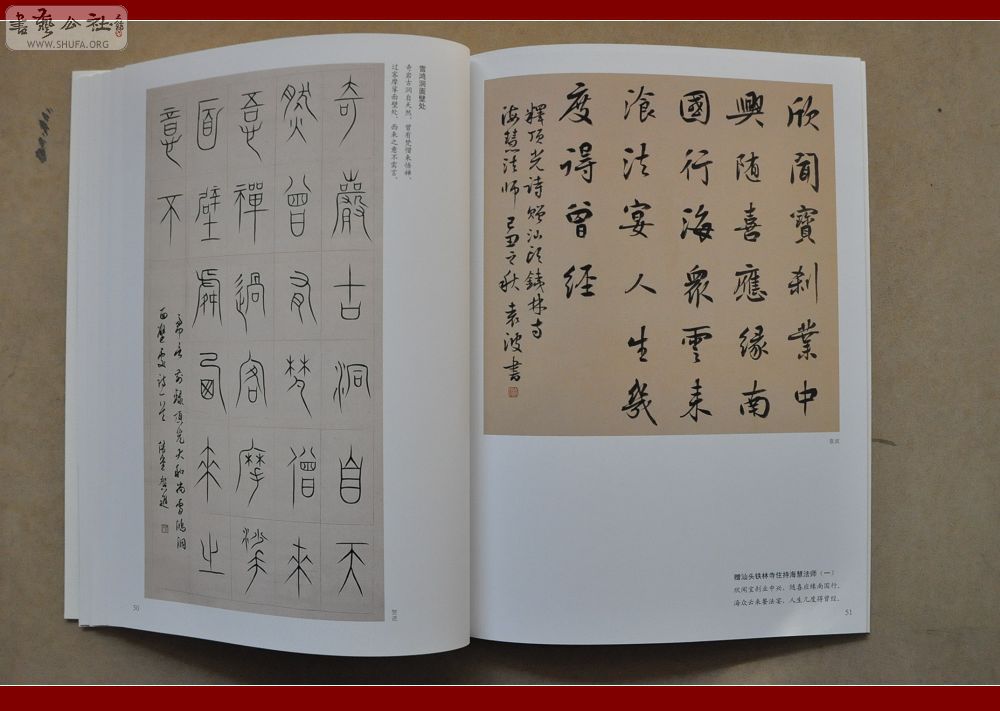 書藝公社
WWW.SHUFA.ORG
雪鸿洞面壁处
奇岩古洞自天然，曾有梵僧来悟禅。
过客摩挲面壁处，西来之意不需言。
奇巖古洞自天
然曾有梵僧來
吾禪過客摩挲
面壁處西來之
意不
需言 前録頂光大和尚雪鴻洞
面壁處詩一首
贺进
50
欣聞寶刹業中
興随喜應緣南
國行海衆雲来
飡法宴人生幾
度得曾經
釋頂光詩贈汕头鐵林寺
海慧法师 己丑之秋 袁波書
袁波
赠汕头铁林寺住持海慧法师（一）
欣闻宝刹业中兴，随喜应缘南国行。
海众云来餐法宴，人生几度得曾经。
51